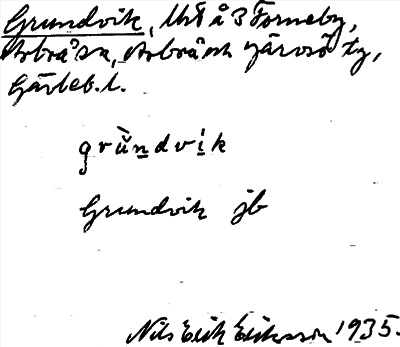 Grundvik, Utå å 3 Forneby,
Arbrå sn, Arbrå och Järvsö tg,
Gävleb. l.
grŭndvik
Grundvik jb
Nils Erik Eriksson 1935.